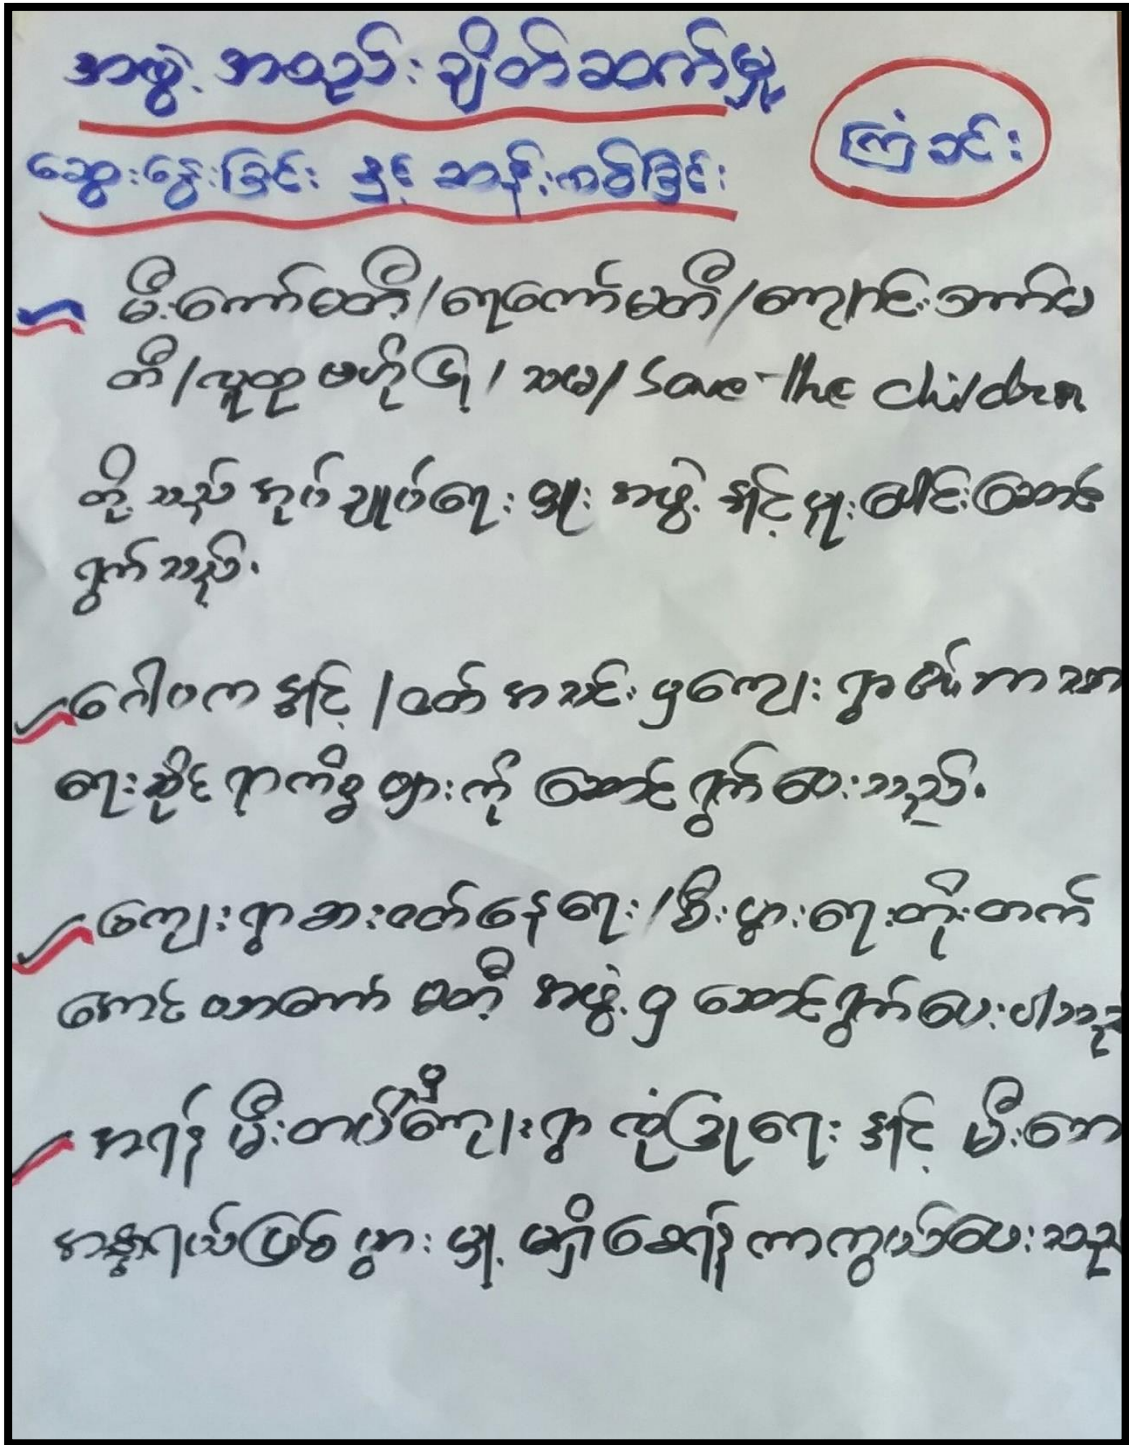 အဖွဲ့အစည်း ချိတ်ဆက်မှု
ကြံခင်း
ဆွေးနွေးခြင်း နှင့် ဆန်းစစ်ခြင်း
မီးကော်မတီ/ရေကော်မတီ/ကျောင်းကော်မ
တီ/လူထုဗဟိုပြု/သမ/Save the children
တို့သည် အုပ်ချုပ်ရေးမှူးအဖွဲ့နှင့် ပူးပေါင်းဆောင်
ရွက်သည်.
ဂေါပက နှင့်/ဝတ်အသင်းမှ ကျေးရွာ ဘာသာ
ရေးဆိုင်ရာကိစ္စများကို ဆောင်ရွက်ပေးသည်.
ကျေးရွာစားဝတ်နေရေး/စီးပွားရေးတိုးတက်
ကော်မတီအဖွဲ့မှ ဆောင်ရွက်ပေးပါသည်
အရန်မီးတပ်မှ ကျေးရွာ လုံခြုံရေး နှင့် မီးဘေး
အန္တရယ်ဖြစ်ပွားမှု မရှိစေရန် ကာကွယ်ပေးသည်